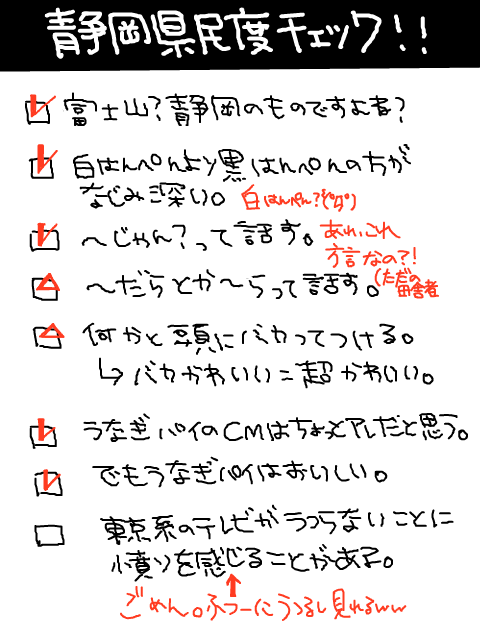 静岡県民度チェック!!
富士山?静岡のものですむぁ?
白はんぺんより黒はんぺんの方が
なじみ深い。
白はんぺん?
〜じゃん?って話す。
あれ、これ
方言なの?!
〜だらとか〜らって話す。
(ただの
田舎者
何かと頭にバカってつける。
↳バカかわいい=超かわいい。
うなぎパイのCMはちょっとアレだと思う。
でもうなぎパイはおいしい。
東京系のテレビがうつらないことに
小憤りを感じることがある。
↑
ごめん。ふつーにうつるし見れるww